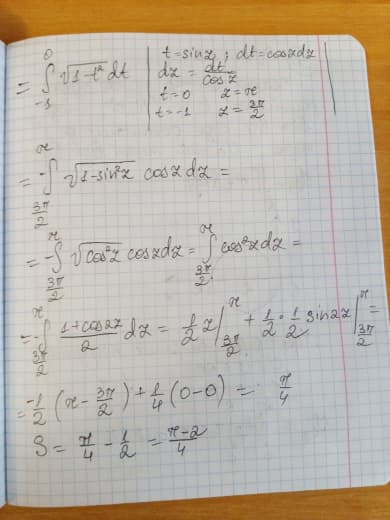 = ∫_{-1}^{0} √(1-t²) dt | t=sinz ; dt=coszdz
dz = dt/cosz
t=0 z=π
t=-1 z=3π/2
= -∫_{3π/2}^{π} √(1-sin²z) cosz dz =
= -∫_{3π/2}^{π} √(cos²z) coszdz = ∫_{3π/2}^{π} cos²zdz =
= -∫_{3π/2}^{π} (1+cos2z)/2 dz = 1/2 z |_{3π/2}^{π} + 1/2 · 1/2 sin2z |_{3π/2}^{π} =
= -1/2 (π - 3π/2) + 1/4 (0-0) = π/4
S = π/4 - 1/2 = (π-2)/4